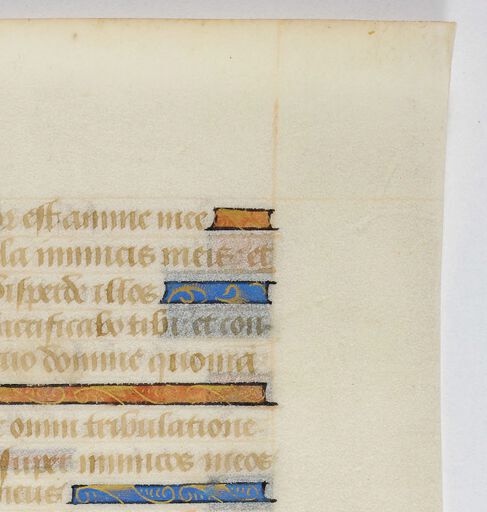 or est anime mee
la inimicis meis et
disperde illos
acrificabo tibi et con-
uo domine quoniā
omni tribulatione
super inimicos meos
meus